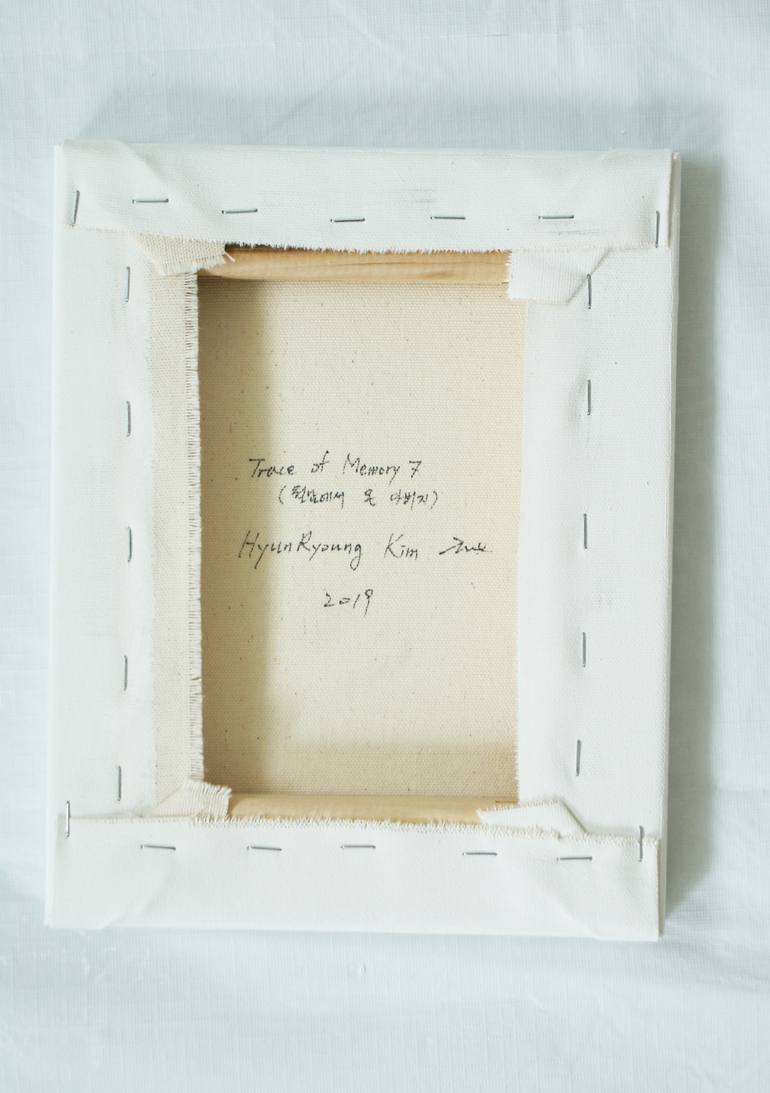 Trace of Memory 7
(월남에서 온 아버지)
HyunRyoung Kim
2019